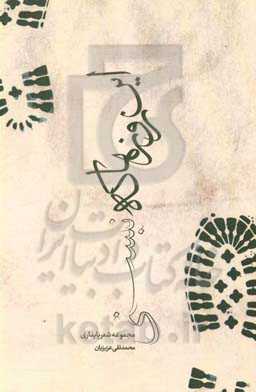 این روزها که نیستی
مجموعه شعر پایداری
محمدتقی عزیزیان
خانه کتاب و ادبیات ایران
ketab.ir